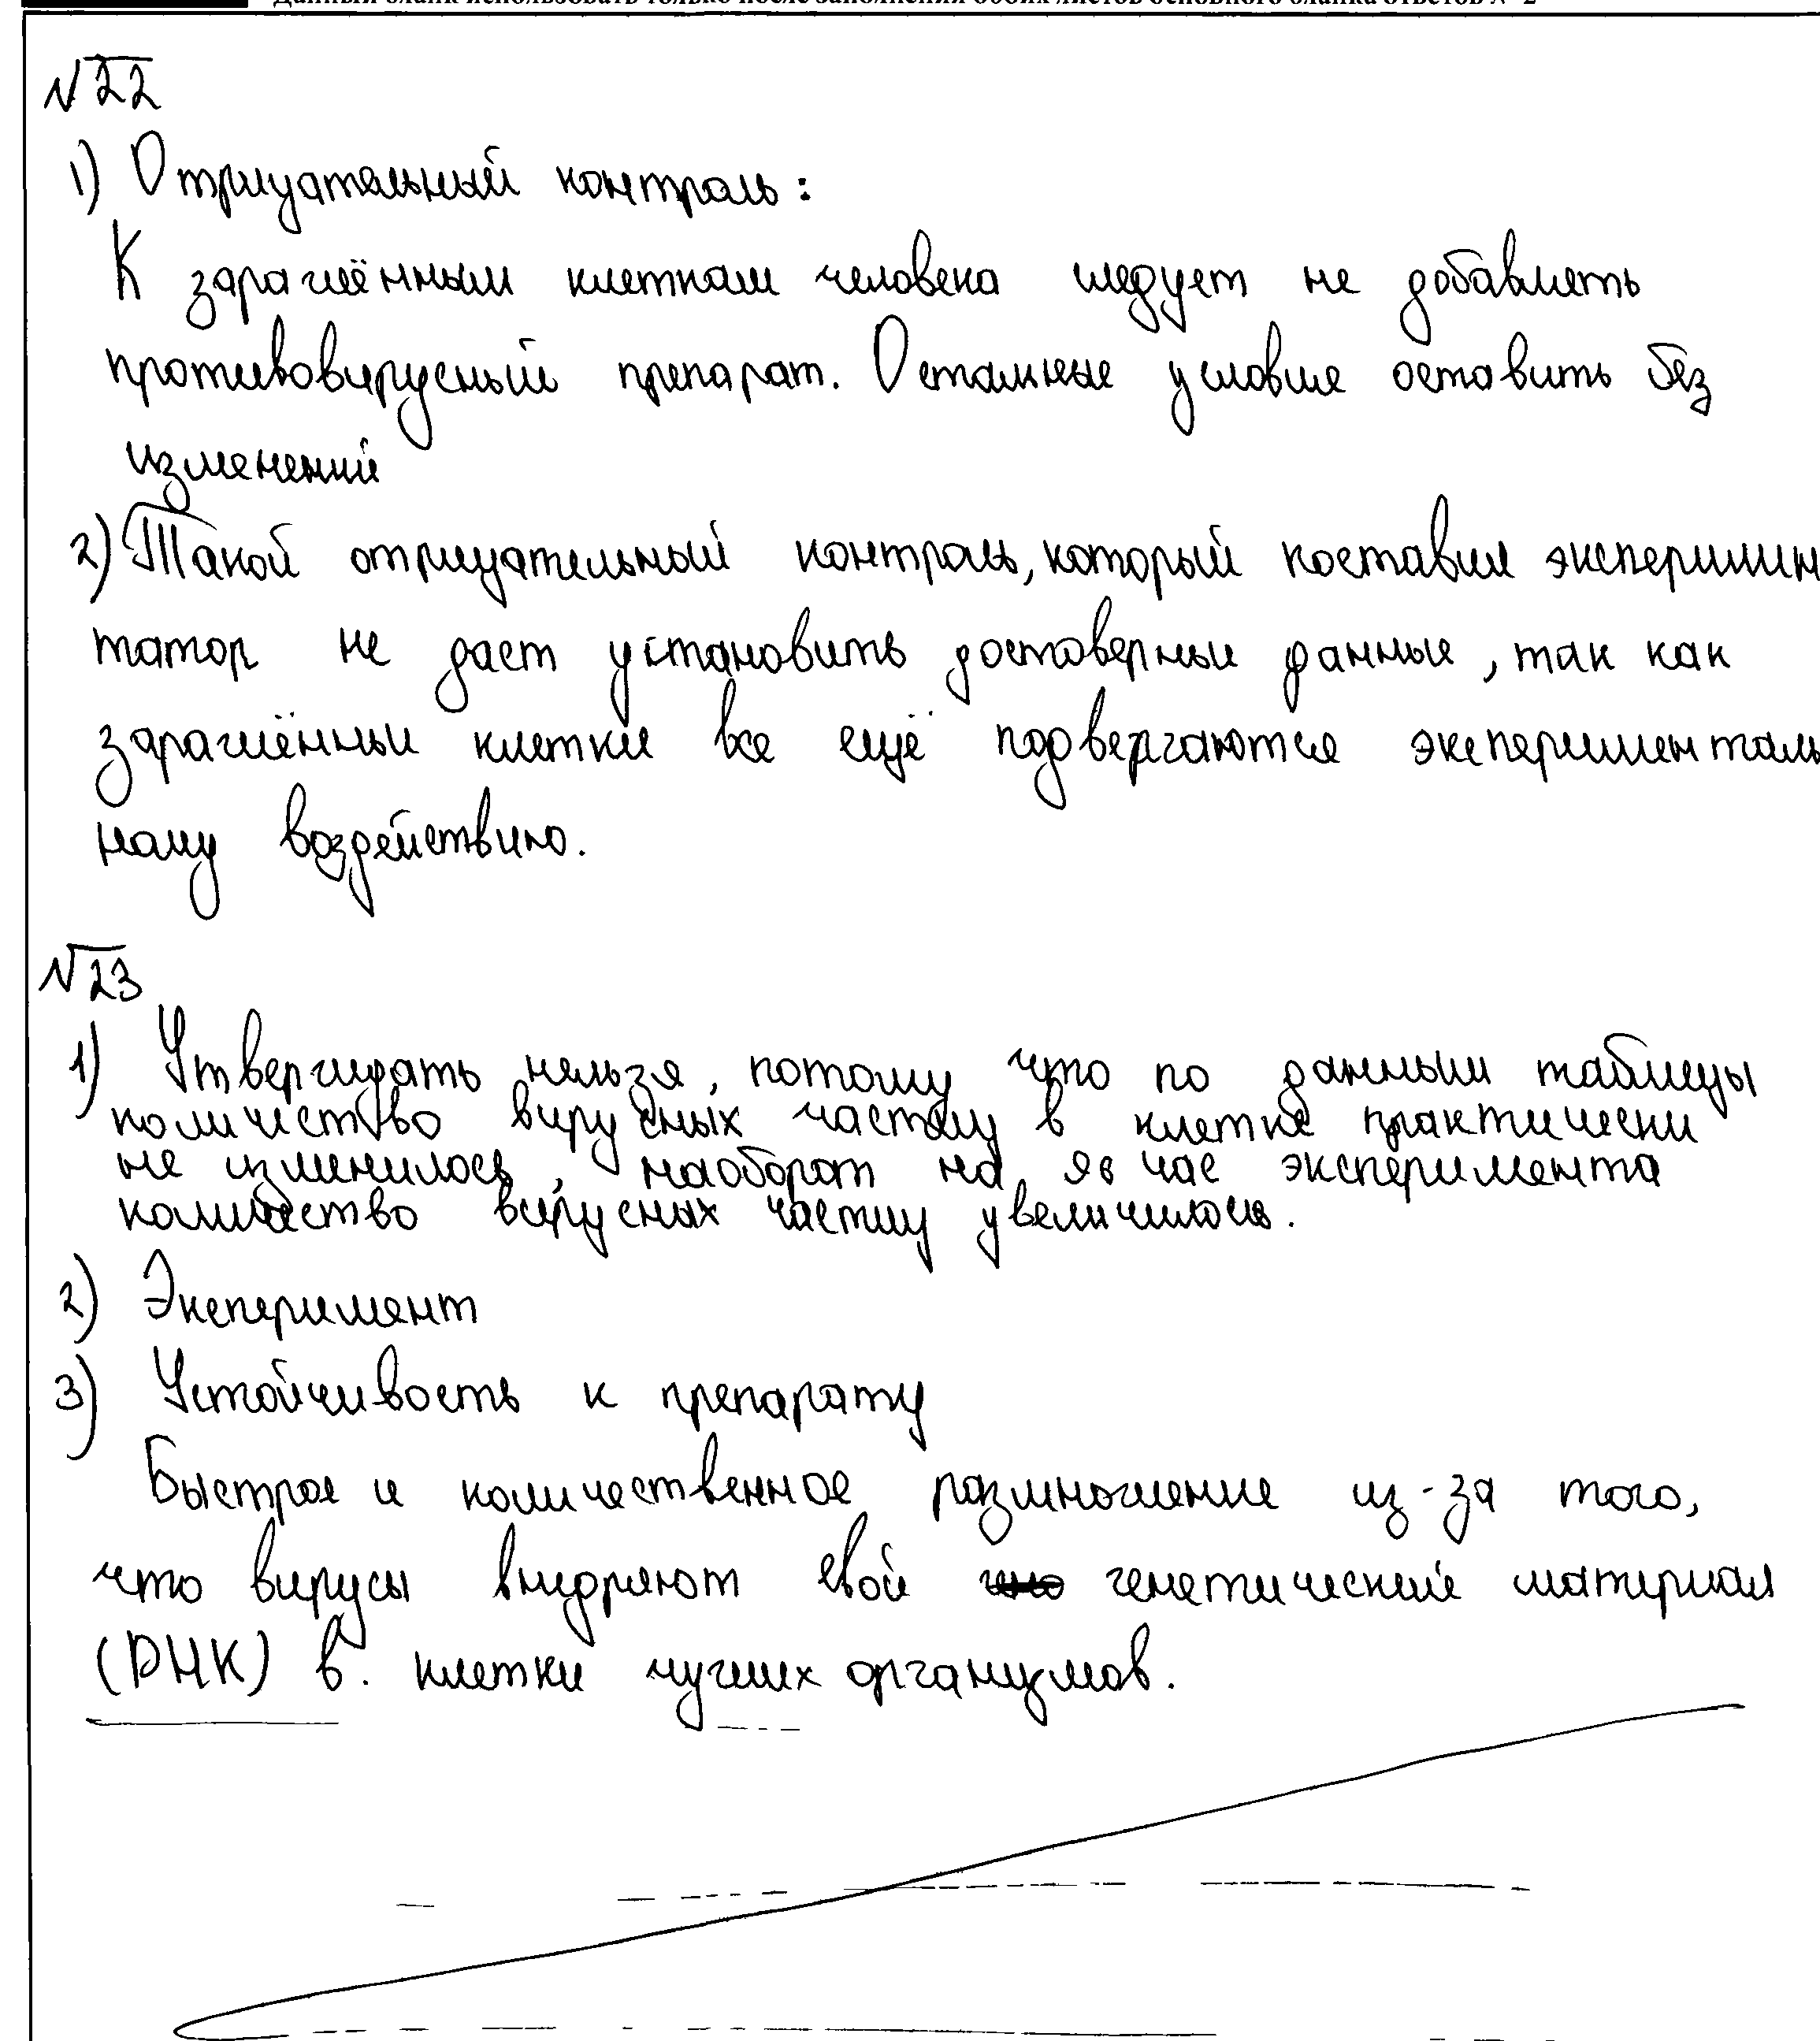 Данный бланк использовать только после заполнения обоих листов основного бланка ответов № 2
№22
1) Отрицательный контроль:
К заражённым клеткам человека следует не добавлять
противовирусный препарат. Остальные условие оставить без
изменений
2) Такой отрицательный контроль, который поставил эксперимин
татор не даст установить достоверные данные, так как
заражённые клетки все ещё подвергаются эксперименталь
ному воздействию.
№23
1) Утверждать нельзя, потому что по данным таблицы
количество вирусных частиц в клетке практически
не изменилось, наоборот на час эксперимента
количество вирусных частиц увеличилось.
2) Эксперимент
3) Устойчивость к препарату
Быстрое и количественное размножение из-за того,
что вирусы внедряют свой генетический материал
(РНК) в. клетки чужих организмов.